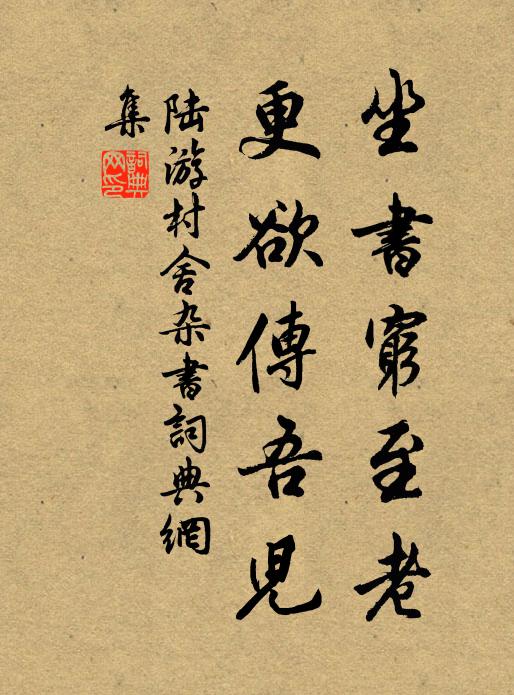 坐書窮至老
更欲傳吾兒
陆游村舍杂書詞典網
集
詞典
网印